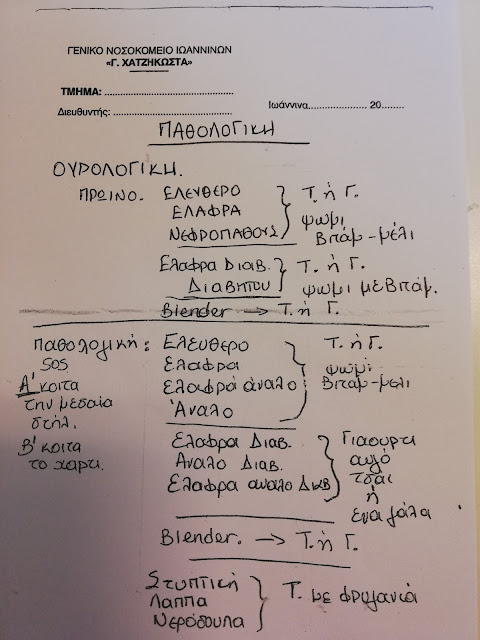 ΓΕΝΙΚΟ ΝΟΣΟΚΟΜΕΙΟ ΙΩΑΝΝΙΝΩΝ
«Γ. ΧΑΤΖΗΚΩΣΤΑ»
ΤΜΗΜΑ: ........................................
Διευθυντής: ................................... Ιωάννινα................... 20.......
ΠΑΘΟΛΟΓΙΚΗ
ΟΥΡΟΛΟΓΙΚΗ.
ΠΡΩΙΝΟ. ΕΛΕΥΘΕΡΟ Τ. ή Γ.
ΕΛΑΦΡΑ ψωμι
ΝΕΦΡΟΠΑΘΟΥΣ Βιτάμ-μέλι
Ελαφρα Διαβ. Τ. ή Γ.
Διαβητου ψωμι με Βιτάμ.
Blender → Τ. ή Γ.
Παθολογική: Ελευθερο Τ. ή Γ.
SOS Ελαφρα ψωμί
Α' κοιτα Ελαφρά άναλο Βιταμ-μελι
την μεσαία Άναλο
στήλ.
Β' κοιτα Ελαφρα Διαβ. Γιαουρτι
το χαρτι. Αναλο Διαβ. αυγό
Ελαφρα αναλο Διαβ τσάι
ή
ενα γάλα
Blender. → Τ. ή Γ.
Στυπτική Τ. με φρυγανιά
Λαππα
Νερόβουλα